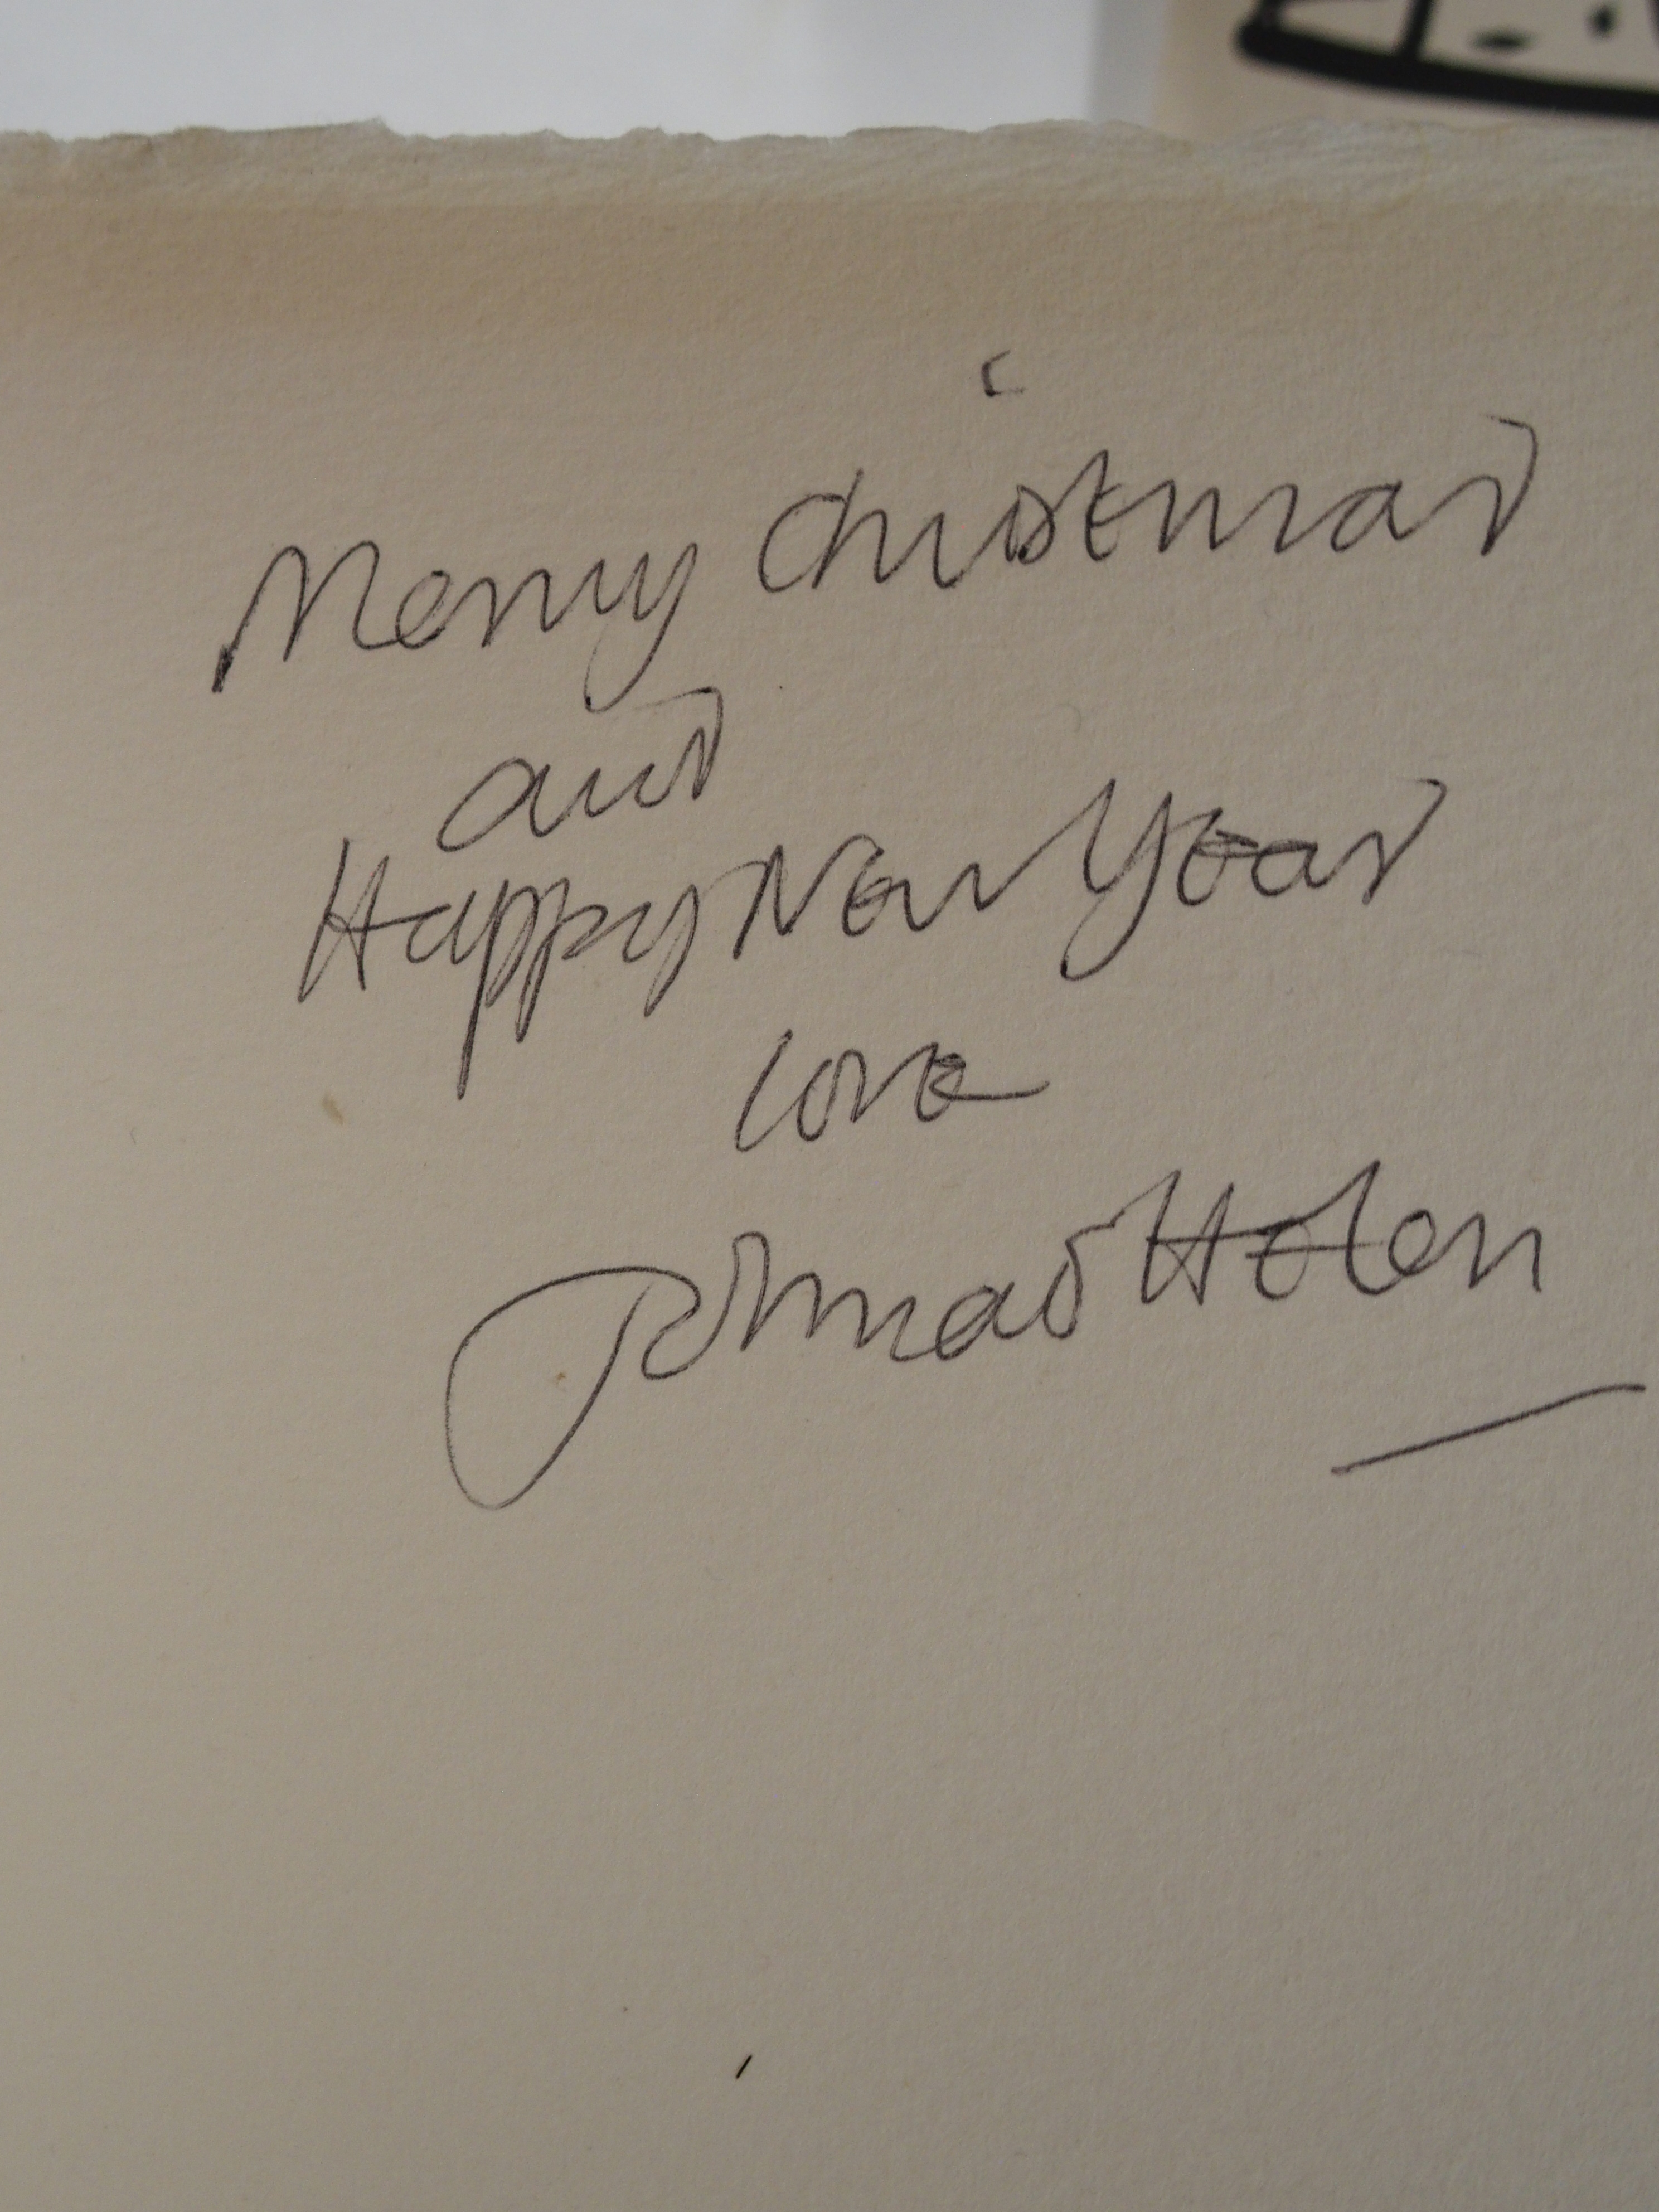 Merry Christmas
and
Happy New Year
love
John and Helen